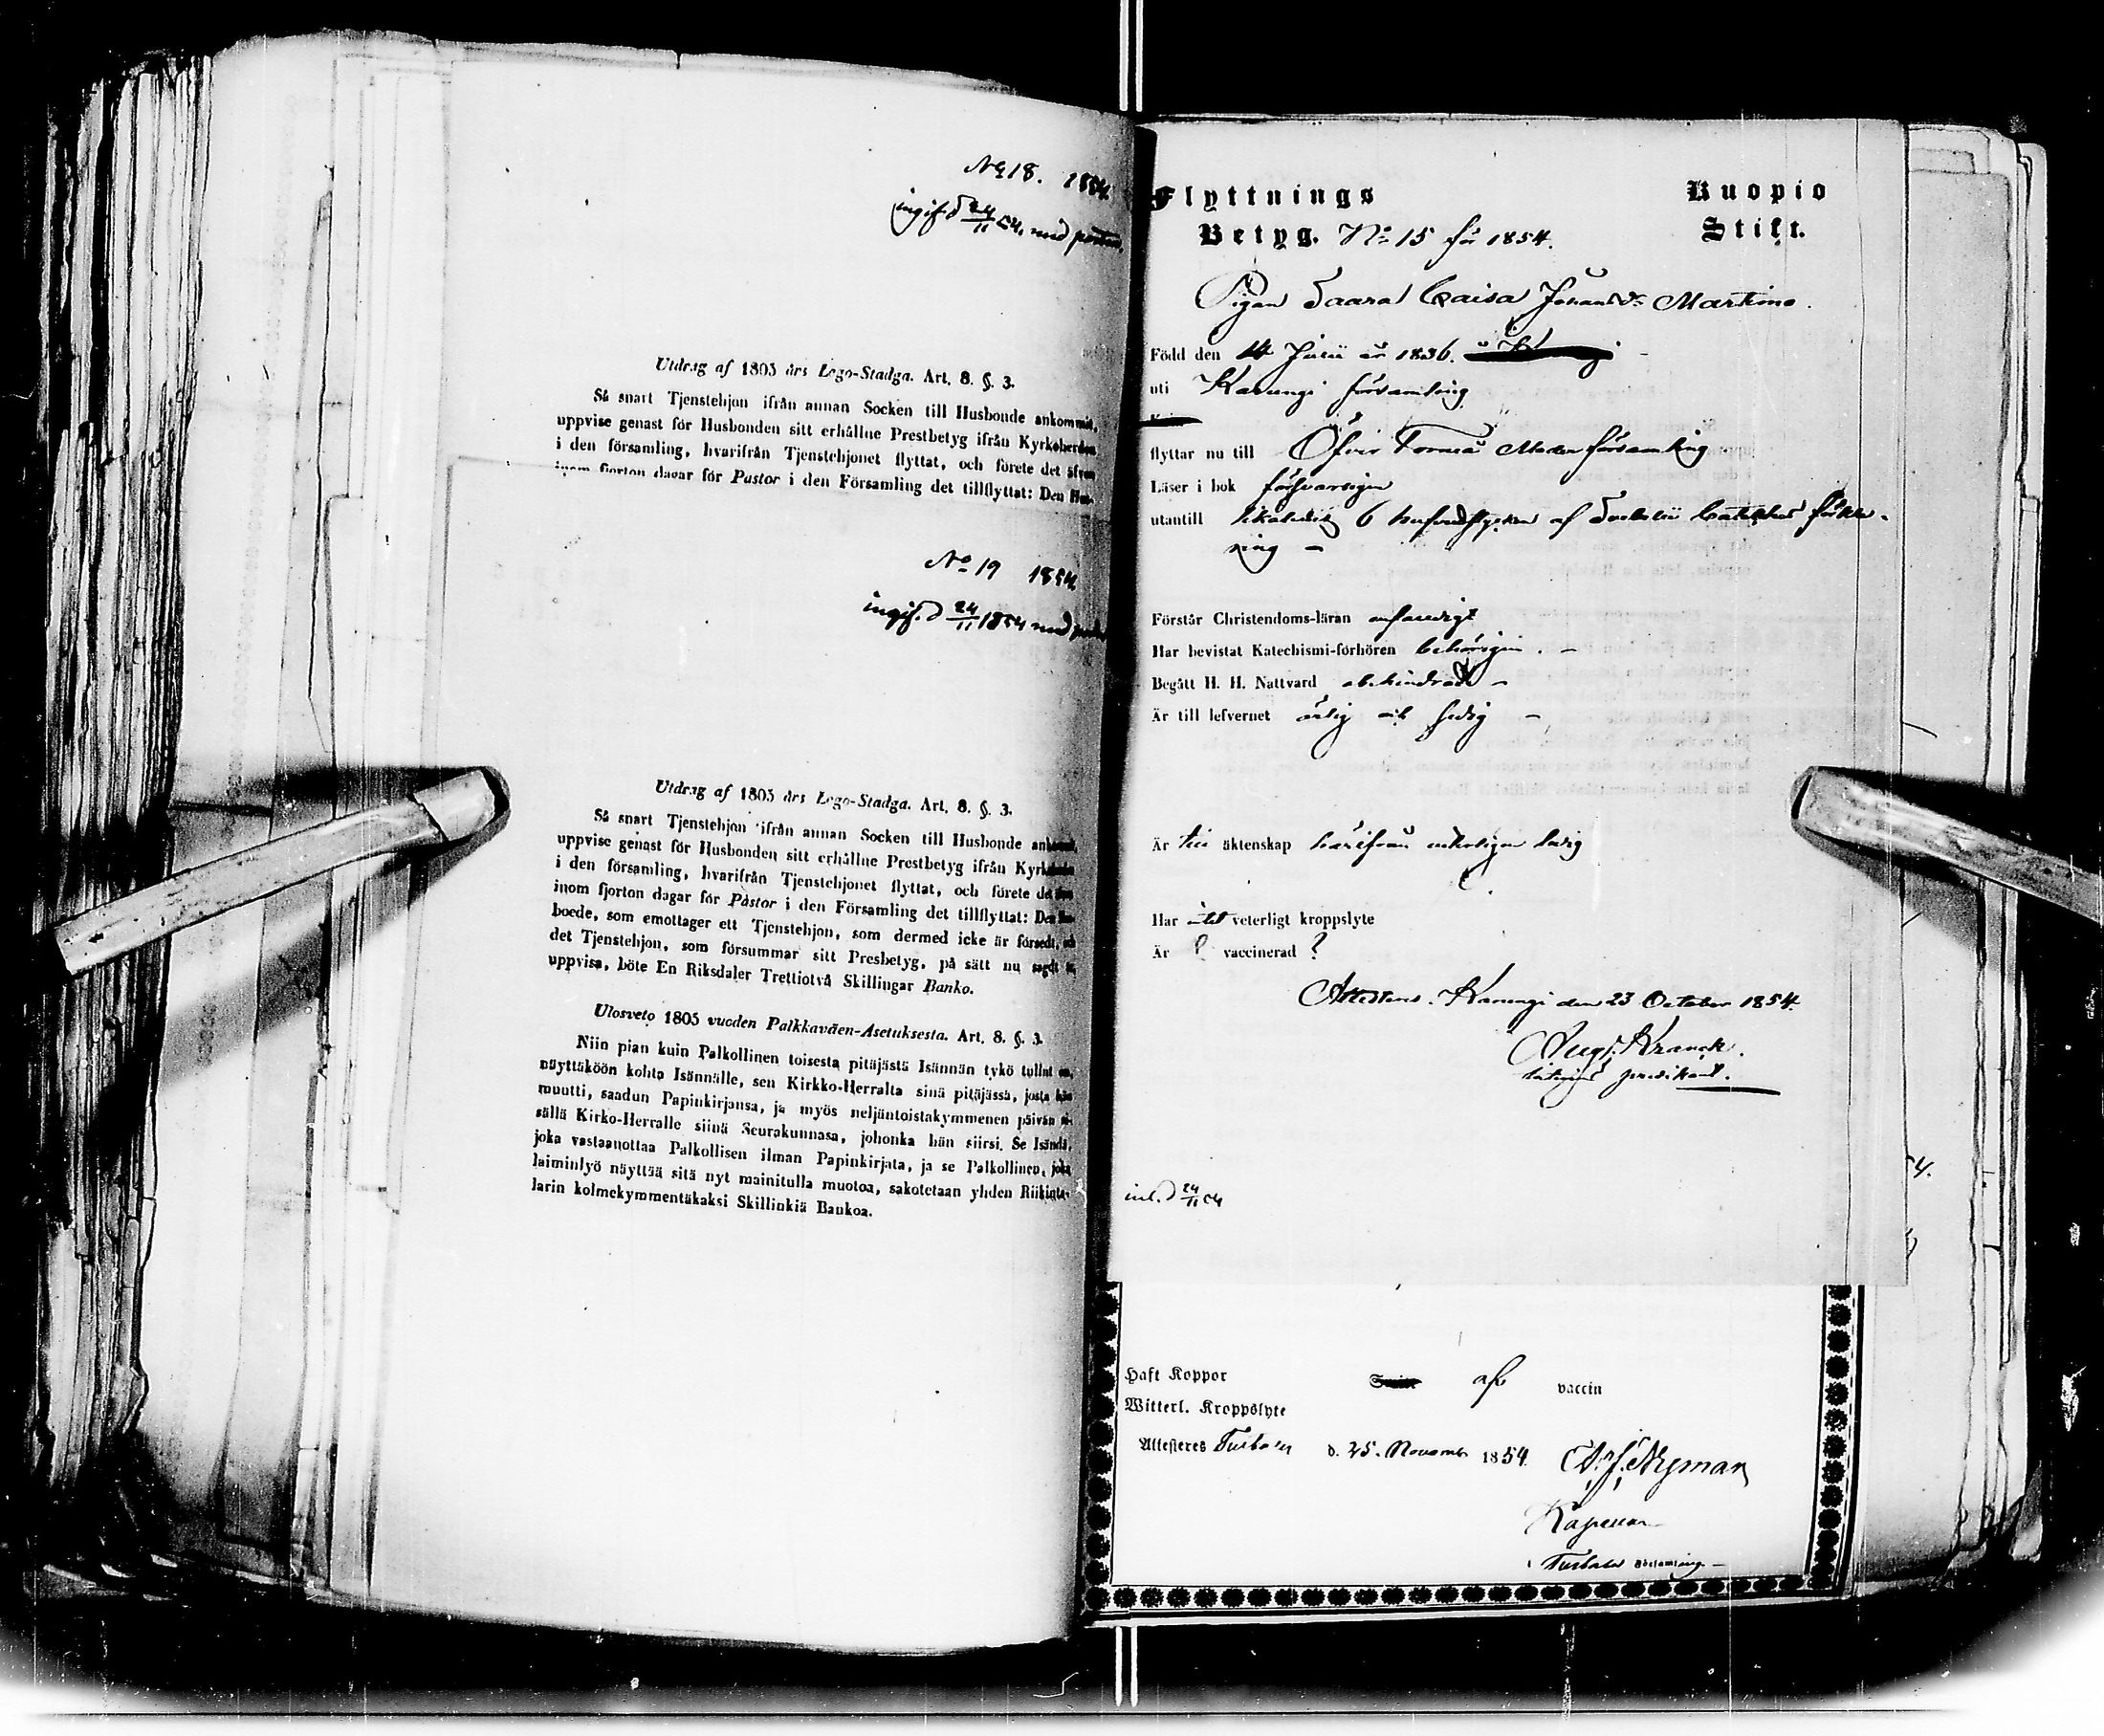 No 18. 1854.
ingif. d 24/11 54. med posten.
Utdrag af 1805 års Lego-Stadga. Art. 8. §. 3.
Så snart Tjenstehjon ifrån annan Socken till Husbonde ankommit,
uppvise genast för Husbonden sitt erhållne Prestbetyg ifrån Kyrkoherden
i den församling, hvarifrån Tjenstehjonet flyttat, och förete det äfven
inom fjorton dagar för Pastor i den Församling det tillflyttat: Den Hus-
No 19 1854.
ingif. d 24/11 1854 med
Utdrag af 1805 års Lego-Stadga. Art. 8. §. 3.
Så snart Tjenstehjon ifrån annan Socken till Husbonde ankommit,
uppvise genast för Husbonden sitt erhållne Prestbetyg ifrån
i den församling, hvarifrån Tjenstehjonet flyttat, och förete det
inom fjorton dagar för Pastor i den Församling det tillflyttat: Den
boede, som emottager ett Tjenstehjon, som dermed icke är försedt, och
det Tjenstehjon, som försummar sitt Presbetyg, på sätt nu sagdt är,
uppvisa, böte En Riksdaler Trettiotvå Skillingar Banko.
Ulosveto 1805 vuoden Palkkaväen-Asetuksesta. Art. 8. §. 3.
Niin pian kuin Palkollinen toisesta pitäjästä Isännän tykö tullut on,
näyttäköön kohta Isännälle, sen Kirkko-Herralta sinä pitäjässä, josta hän
muutti, saadun Papinkirjansa, ja myös neljäntoistakymmenen päivän si-
sällä Kirko-Herralle siinä Seurakunnasa, johonka hän siirsi. Se Isäntä,
joka vastaanottaa Palkollisen ilman Papinkirjata, ja se Palkollinen, joka
laiminlyö näyttää sitä nyt mainitulla muotoa, sakotetaan yhden Riikinta-
larin kolmekymmentäkaksi Skillinkiä Bankoa.
Flyttnings Kuopio
Betyg. No 15 för 1854. Stift.
Pigan Saara Caisa Johansdr Martimo.
Född den 14 Juni år 1836.
uti Karungi församling
flyttar nu till Öfver Torneå Moderförsamling
Läser i bok försvarligen
utantill likaledes 6 hufvudstycken af Svebelii Cateches förkla-
ring –
Förstår Christendoms-läran enfaldigt
Har bevistat Katechismi-förhören behörigen. –
Begått H. H. Nattvard obehindrad –
Är till lefvernet ärlig och sedig –
Är till äktenskap härifrån veterligen ledig
Har intet veterligt kroppslyte
Är ? vaccinerad ?
Attesteras. Karungi den 23 October 1854.
Aug. Kranck.
predikant.
inl. d 24/11 54
Haft Koppor af vaccin
Witterl. Kroppslyte
Attesteres d. 25. Novemb. 1854. Nyman
Kapellan
i församling –